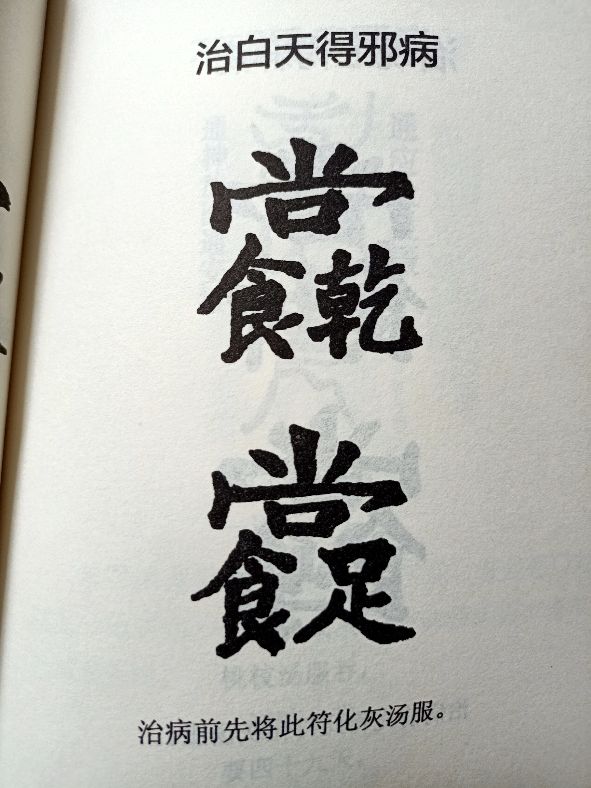 治白天得邪病
尚
食乾
尚
食足
治病前先将此符化灰汤服。